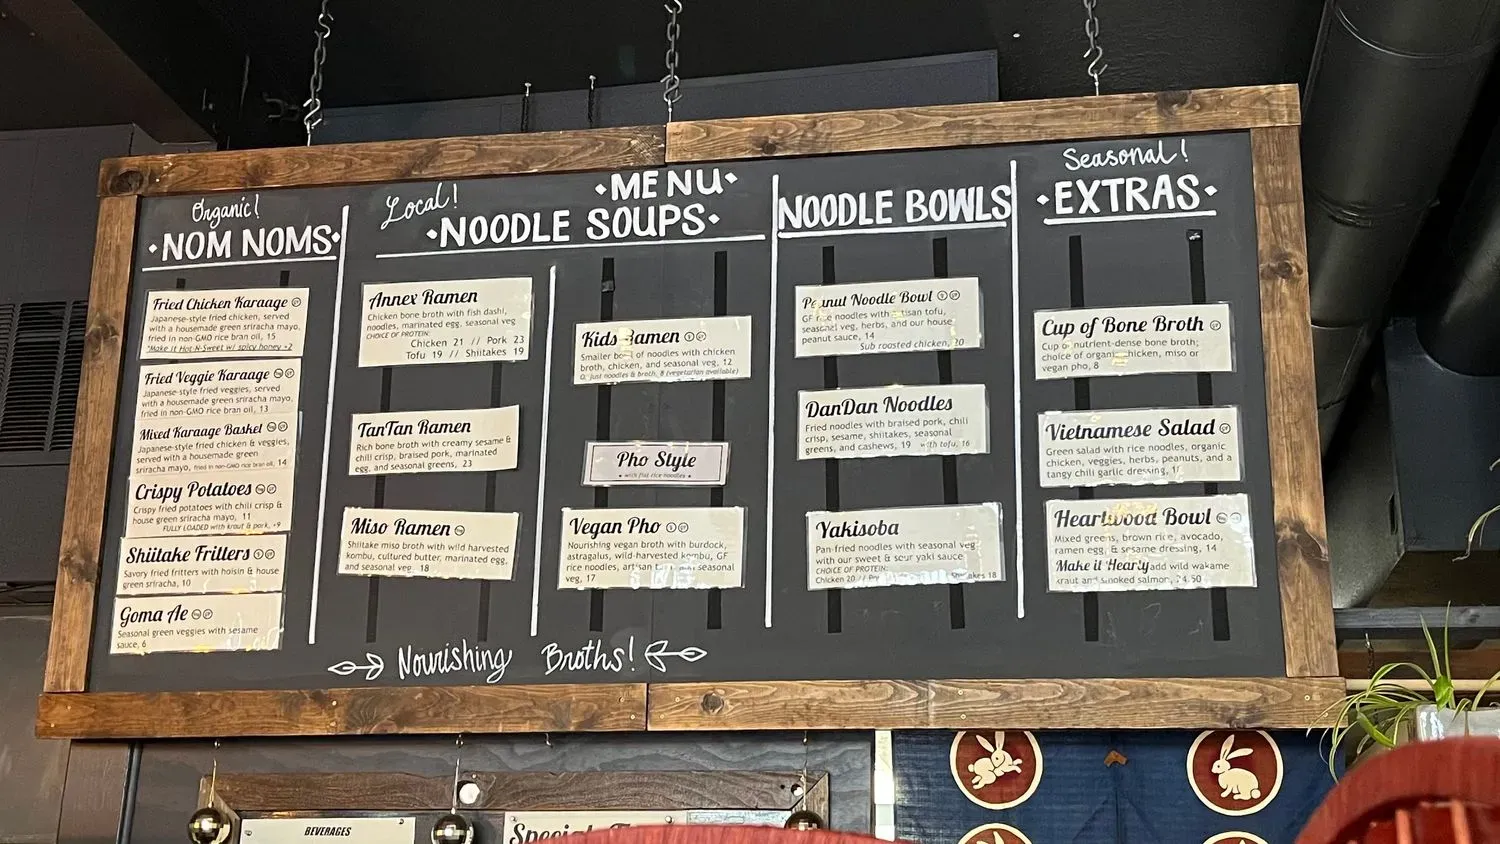 Organic!
NOM NOMS
Fried Chicken Karaage GF
Japanese-style fried chicken, served
with a housemade green sriracha mayo,
fried in non-GMO rice bran oil, 15
*Make it Hot-N-Sweet w/ spicy honey +2
Fried Veggie Karaage
Japanese-style fried veggies, served
with a housemade green sriracha mayo,
fried in non-GMO rice bran oil, 13
Mixed Karaage Basket
Japanese-style fried chicken & veggies,
served with a housemade green
sriracha mayo, fried in non-GMO rice bran oil, 14
Crispy Potatoes
Crispy fried potatoes with chili crisp &
house green sriracha mayo, 11
FULLY LOADED with kraut & pork, +9
Shiitake Fritters
Savory fried fritters with hoisin & house
green sriracha, 10
Goma Ae
Seasonal green veggies with sesame
sauce, 6
MENU
Local!
NOODLE SOUPS
Annex Ramen
Chicken bone broth with fish dashi,
noodles, marinated egg, seasonal veg
CHOICE OF PROTEIN:
Chicken 21 // Pork 23
Tofu 19 // Shiitakes 19
TanTan Ramen
Rich bone broth with creamy sesame &
chili crisp, braised pork, marinated
egg, and seasonal greens, 23
Miso Ramen
Shiitake miso broth with wild harvested
kombu, cultured butter, marinated egg,
and seasonal veg. 18
Kids Ramen
Smaller bowl of noodles with chicken
broth, chicken, and seasonal veg, 12
just noodles & broth, 8 (vegetarian available)
Pho Style
• with flat rice noodles •
Vegan Pho
Nourishing vegan broth with burdock,
astragalus, wild-harvested kombu, GF
rice noodles, artisan seasonal
veg, 17
Nourishing Broths!
NOODLE BOWLS
Peanut Noodle Bowl
GF rice noodles with artisan tofu,
seasonal veg, herbs, and our house
peanut sauce, 14
Sub roasted chicken, 20
DanDan Noodles
Fried noodles with braised pork, chili
crisp, sesame, shiitakes, seasonal
greens, and cashews, 19 with tofu, 16
Yakisoba
Pan-fried noodles with seasonal veg
with our sweet & sour yaki sauce
CHOICE OF PROTEIN:
Chicken 20 // Shiitakes 18
Seasonal!
EXTRAS
Cup of Bone Broth
Cup of nutrient-dense bone broth;
choice of organic chicken, miso or
vegan pho, 8
Vietnamese Salad
Green salad with rice noodles, organic
chicken, veggies, herbs, peanuts, and a
tangy chili garlic dressing,
Heartwood Bowl
Mixed greens, brown rice, avocado,
ramen egg, & sesame dressing, 14
Make it Hearty add wild wakame
kraut and smoked salmon, 24.50
BEVERAGES